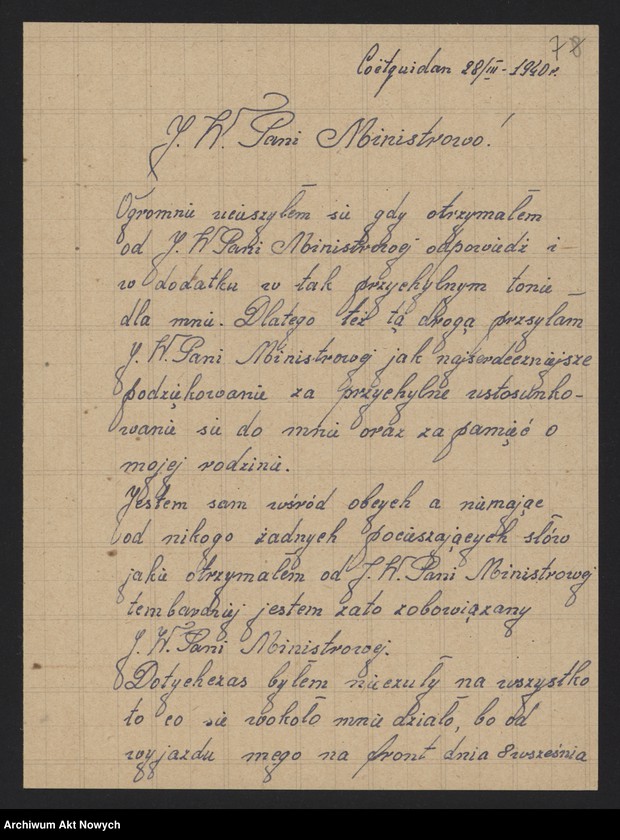 78
Coëtquidan 28/III - 1940 r.
J. W. Pani Ministrowo!
Ogromnie ucieszyłem sie gdy otrzymałem
od J. W Pani Ministrowej odpowiedź i -
w dodatku w tak przychylnym tonie
dla mnie. Dlatego też tą drogą przsyłam
J. W. Pani Ministrowej jak najserdeczniejsze
podziękowanie za przychylne ustosunko-
wanie sie do mnie oraz za pamięć o
mojej rodzinie.
Jestem sam wśród obcych a niemając
od nikogo żadnych pocieszających słów
jakie otrzymałem od J. W. Pani Ministrowej
tembardziej jestem zato zobowiązany
J. W. Pani Ministrowej.
Dotychczas byłem nieczuły na wszystko
to co sie wokoło mnie działo, bo od
wyjazdu mego na front dnia 8 wsześnia
Archiwum Akt Nowych